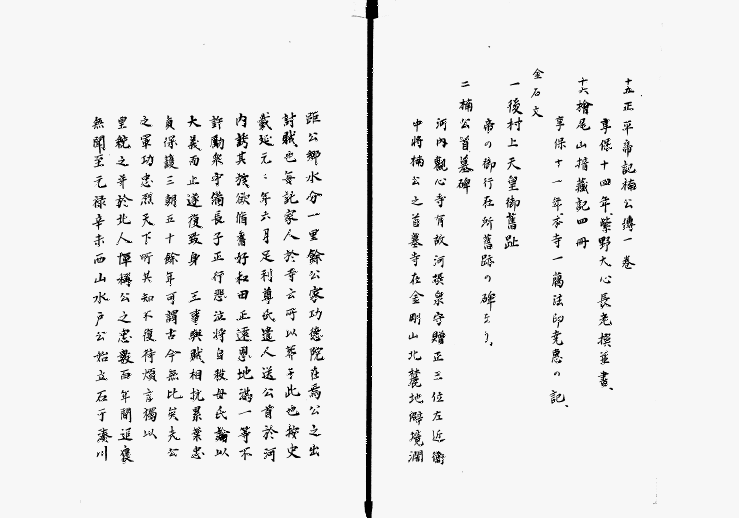 十五 正平帝記楠公傳一巻
享保十四年、紫野大心長老撰並畫、
十六 檜尾山揩藏記四冊
享保十一年、本寺一﨟法印堯惠の記、
金石文
一 後村上天皇御舊趾
帝の御行在所舊跡の碑なり、
二 楠公首墓碑
河内觀心寺有故河摂泉守贈正三位左近衛
中將楠公之首墓寺在金剛山北麓地僻境濶
距公郷水分一里餘公家功德院在焉公之出
討賊也每託家人於寺云所以葬于此也按史
載延元元年六月足利尊氏遣人送公首於河
内誇其族欲脩舊好和田正遠恩地滿一等不
許勵衆守備長子正行悲泣將自殺母氏諭以
大義而止遂復致身 三事與賊相抗累葉忠
貞保護三朝五十餘年可謂古今無比矣夫公
之軍功忠烈天下所共知不復待煩言獨以
皇統之幷於北人憚稱公之忠數百年間逗褒
無聞至元禄辛未西山水戸公始立石于湊川